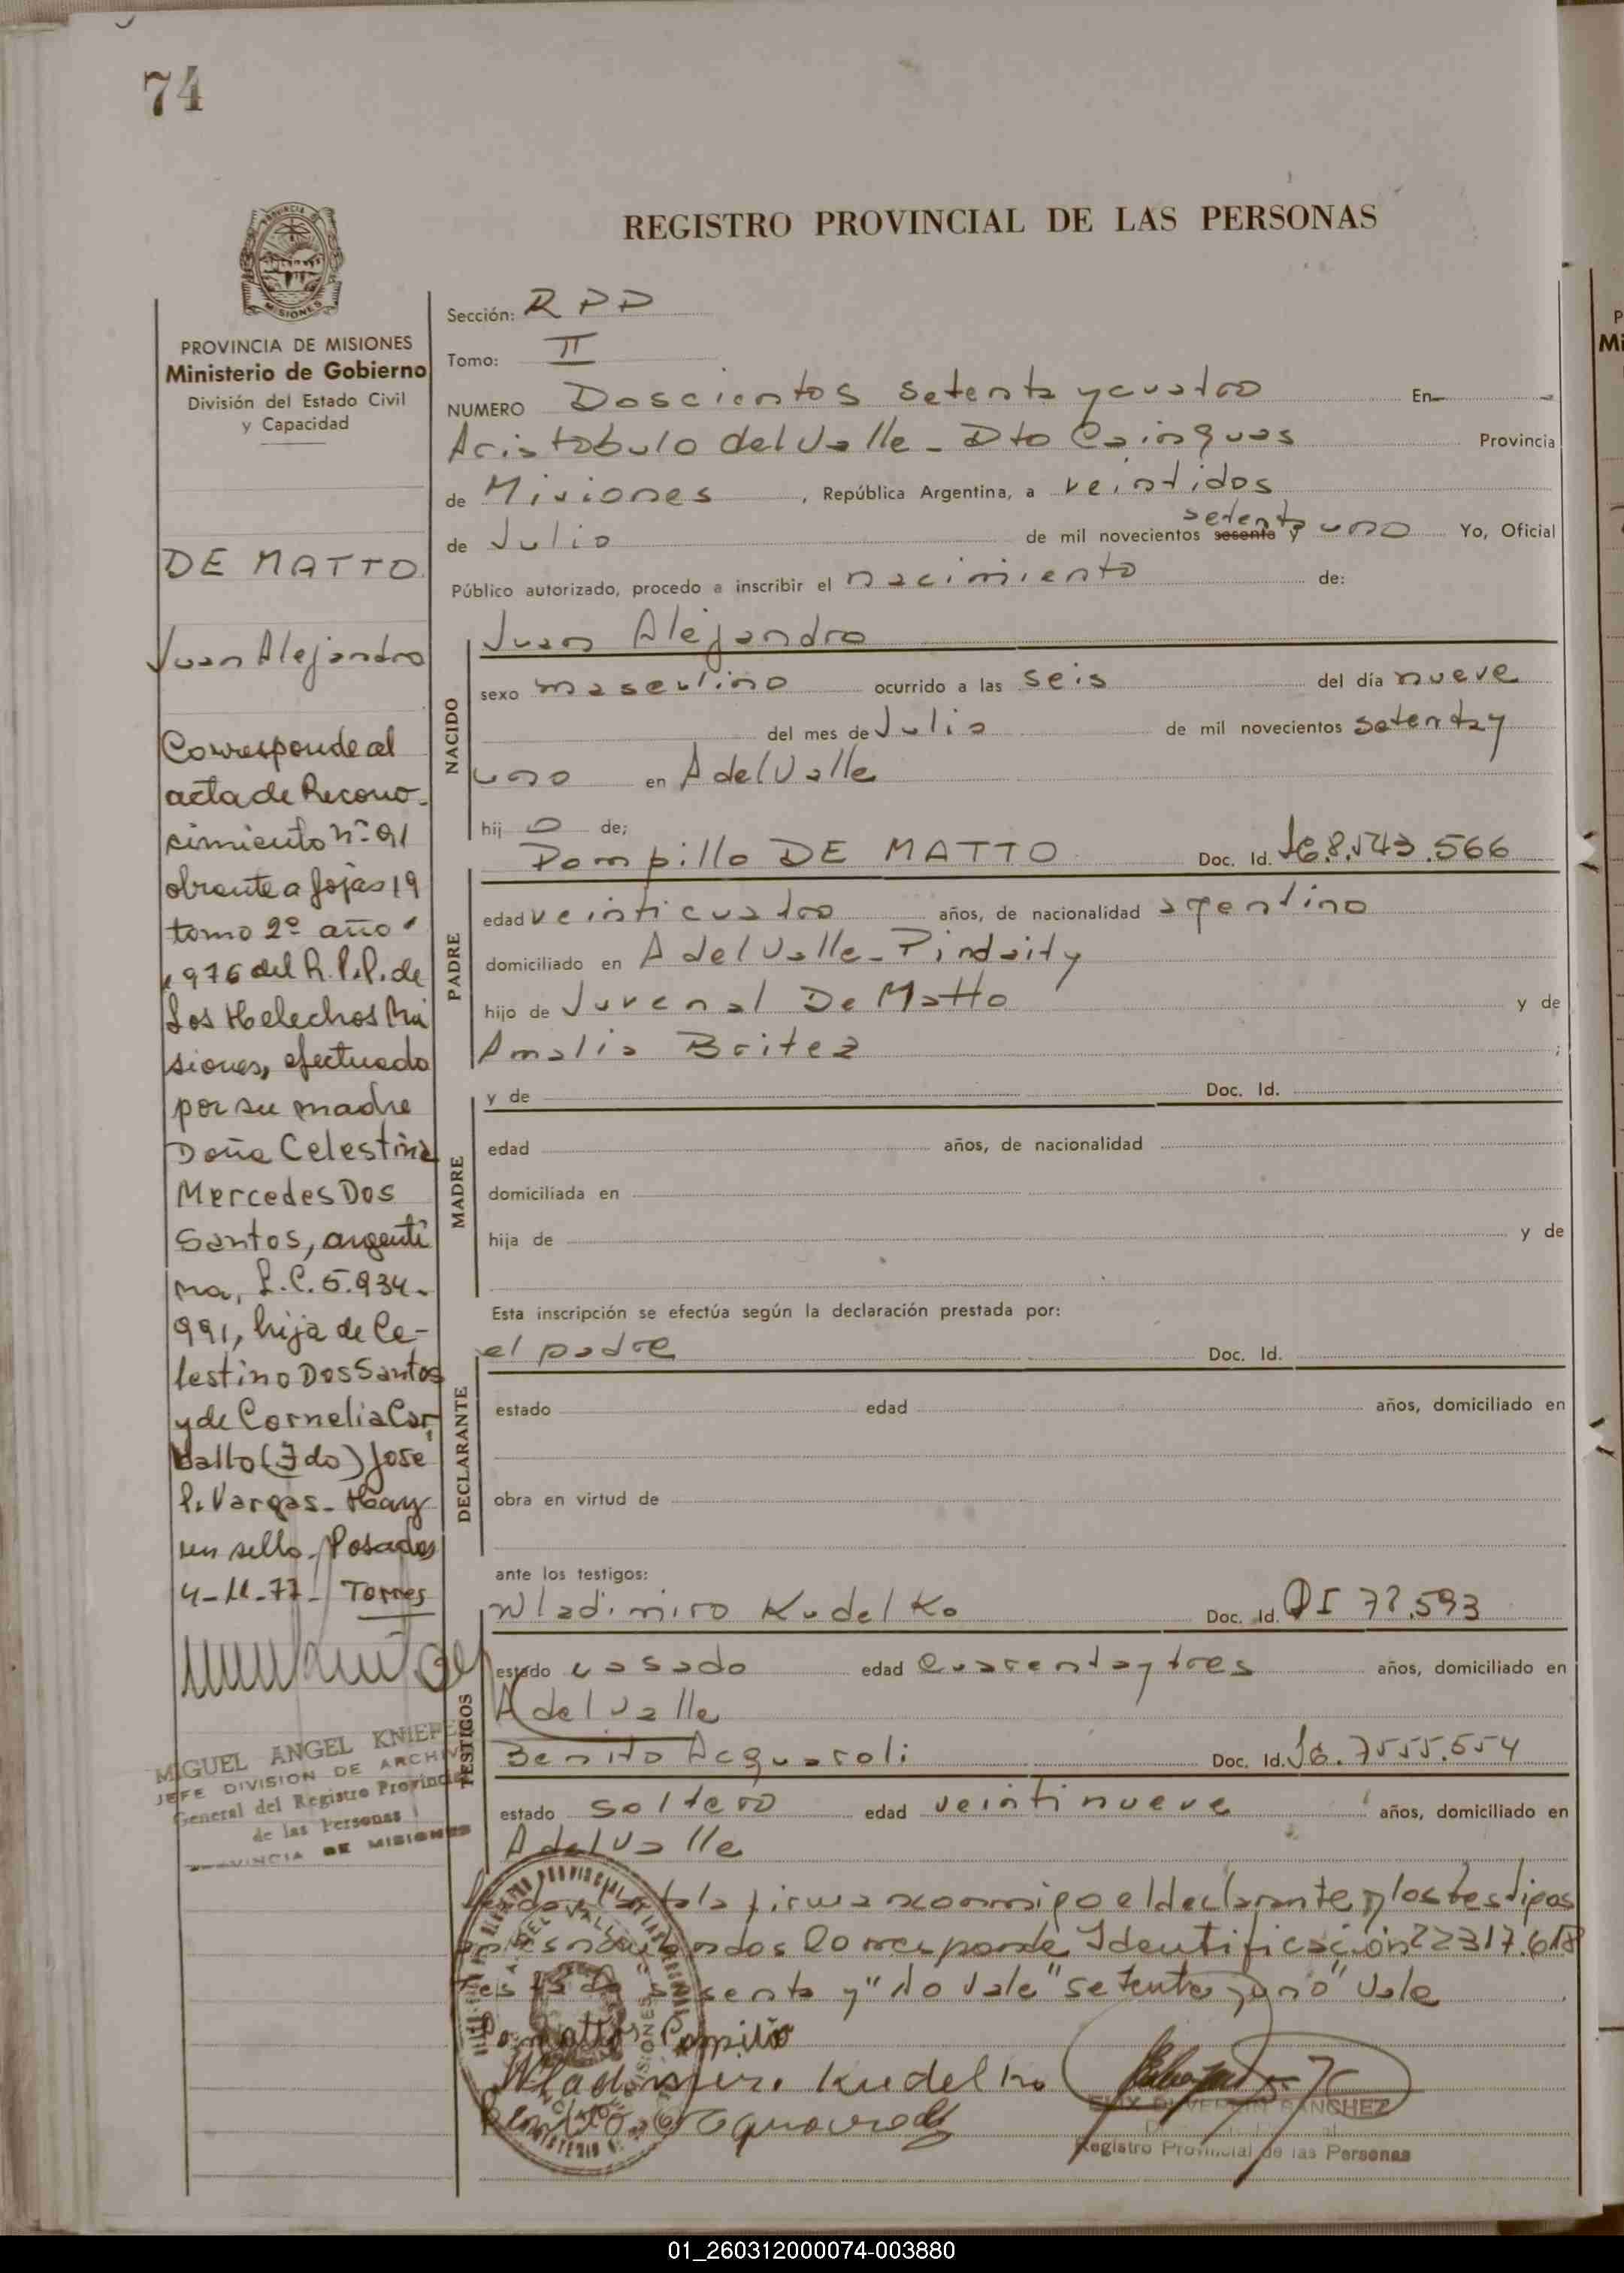 74
REGISTRO PROVINCIAL DE LAS PERSONAS
MISIONES
PROVINCIA DE MISIONES
Ministerio de Gobierno
División del Estado Civil
y Capacidad
DE MATTO
Juan Alejandro
Corresponde al
acta de Recono-
cimiento nº 91
obrante a fojas 19
tomo 2º año
1976 del R.P.P. de
Los Helechos Mi
siones, efectuado
por su madre
Doña Celestina
Mercedes Dos
Santos, argenti
na, L.C. 5.934.
991, hija de Ce-
lestino Dos Santos
y de Cornelia Car
ballo (Fdo) José
P. Vargas - Hay
un sello - Posadas
4-11-77 - Torres
MIGUEL ANGEL KNIEPE
JEFE DIVISION DE ARCHIV
General del Registro Provincia
de las Personas
VINCIA DE MISIONES
Sección: RPP
Tomo: II
NUMERO Doscientos setenta y cuatro En
Aristobulo del Valle - Dto Cainguas Provincia
de Misiones, República Argentina, a veintidos
de Julio de mil novecientos sesenta setenta y uno Yo, Oficial
Público autorizado, procedo a inscribir el nacimiento de:
NACIDO
Juan Alejandro
sexo masculino ocurrido a las seis del día nueve
del mes de Julio de mil novecientos setenta y
uno en A del Valle
hij o de;
PADRE
Pompillo DE MATTO Doc. Id. 8.543.566
edad veinticuatro años, de nacionalidad argentino
domiciliado en A del Valle - Pindaity
hijo de Juvenal De Matto y de
Amalia Britez ;
MADRE
y de Doc. Id.
edad años, de nacionalidad
domiciliada en
hija de y de
Esta inscripción se efectúa según la declaración prestada por:
DECLARANTE
el padre Doc. Id.
estado edad años, domiciliado en
obra en virtud de
ante los testigos:
TESTIGOS
Wladimiro Kudelko Doc. Id. 72.593
estado casado edad cuarenta y tres años, domiciliado en
A del Valle
Benito Acquaroli Doc. Id. 7555.554
estado soltero edad veintinueve años, domiciliado en
A del Valle
acta la firman conmigo el declarante y los testigos
Corresponde Identificación 22317.618
sesenta y "No Vale" setenta y uno" Vale
Pompilio
Wladimiro Kudelko
Benito Acquaroli
SANCHEZ
Registro Provincial de las Personas
01_260312000074-003880